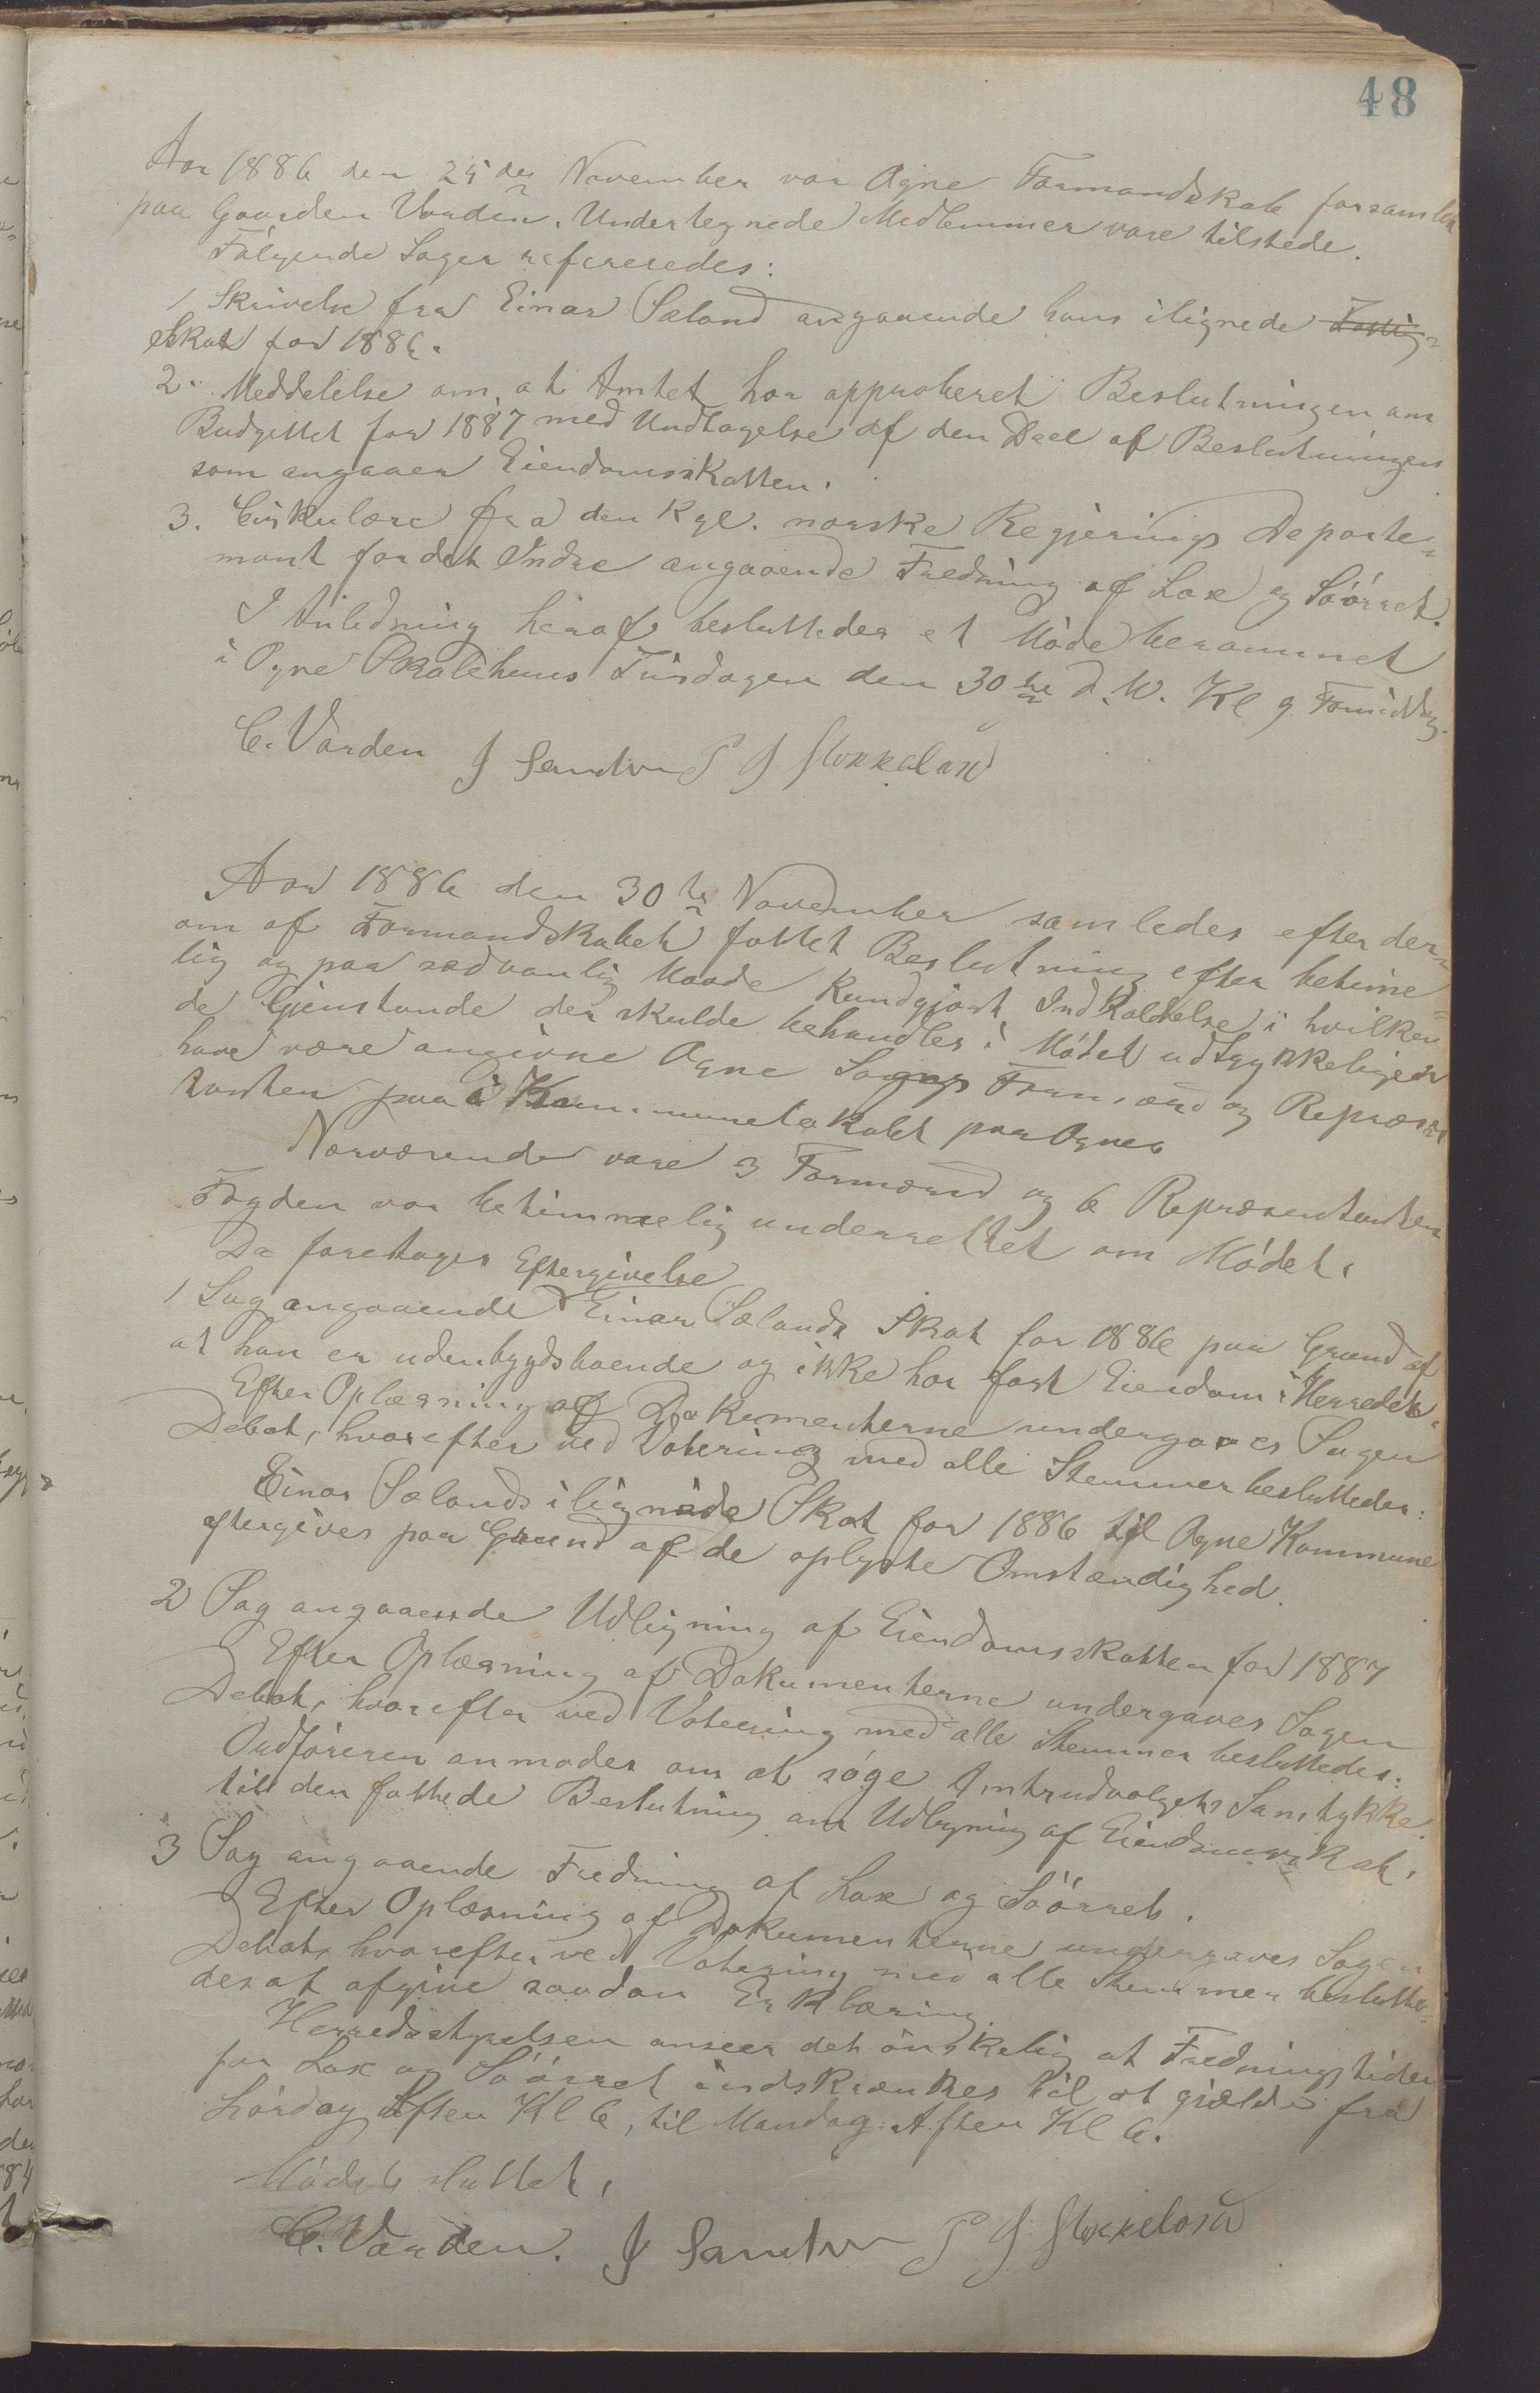 48
Aar 1886 den 25des November var Ogne Formandskab forsamlet
paa Gaarden Varden. Undertegnede Medlemmer vare tilstede.
Følgende Sager refereredes:
1 Skrivelse fra Einar Sæland angaaende hans ilignede
Skat for 1886.
2. Meddelelse om, at Amtet har approberet Beslutningen om
Budgettet for 1887 med Undtagelse af den Deel af Beslutningen
som angaaer Eiendomsskatten.
3. Cirkulære fra den Kgl. norske Regjerings Departe-
ment for det Indre angaaende Fredning af Lax og Søørret.
I Anledning heraf besluttedes et Møde berammet
i Ogne Skolehuus Tirsdagen den 30te d. M. Kl 9 Formiddag.
C. Varden J Sandve P J Stokkeland
Aar 1886 den 30te November samledes efter der-
om af Formandskabet fattet Beslutning efter betime-
lig og paa sædvanlig Maade kundgjort Indkaldelse i hvilken
de Gjenstande der skulde behandles i Mødet udtrykkeligen
have være angivne Ogne Sogns Formænd og Repræsen
tanter paa Kommunelokalet paa Ogne.
Nærværende vare 3 Formænd og 6 Repræsentanter
Fogden var betimmelig underrettet om Mødet.
Da foretoges Eftergivelse
1 Sag angaaende Einar Sælands Skat for 1886 paa Grund af
at han er udenbygdsboende og ikke har fast Eiendom i Herredet.
Efter Oplæsning af Dokumenterne undergaves Sagen
Debat, hvorefter ved Votering med alle Stemmer besluttedes:
Einar Sælands ilignede Skat for 1886 til Ogne Kommune
eftergives paa Grund af de oplyste Omstændighed.
2 Sag angaaende Udligning af Eiendomsskatten for 1887
Efter Oplæsning af Dokumenterne undergaves Sagen
Debat, hvorefter ved Votering med alle Stemmer besluttedes:
Ordføreren anmodes om at søge Amtsudvalgets Samtykke
til den fattede Beslutning om Udligning af Eiendomsskat.
3 Sag angaaende Fredning af Lax og Søørret.
Efter Oplæsning af Dokumenterne undergaves Sagen
Debat, hvorefter ved Votering med alle Stemmer beslutte-
des at afgive saadan Erklæring.
Herredsstyrelsen anseer det ønskelig at Fredningstiden
for Lax og Søørret indskrænkes til at gjælde fra
Lørdag Aften Kl 6, til Mandag Aften Kl 6.
Mødet sluttet.
C. Varden. J Sandve P J Stokkeland